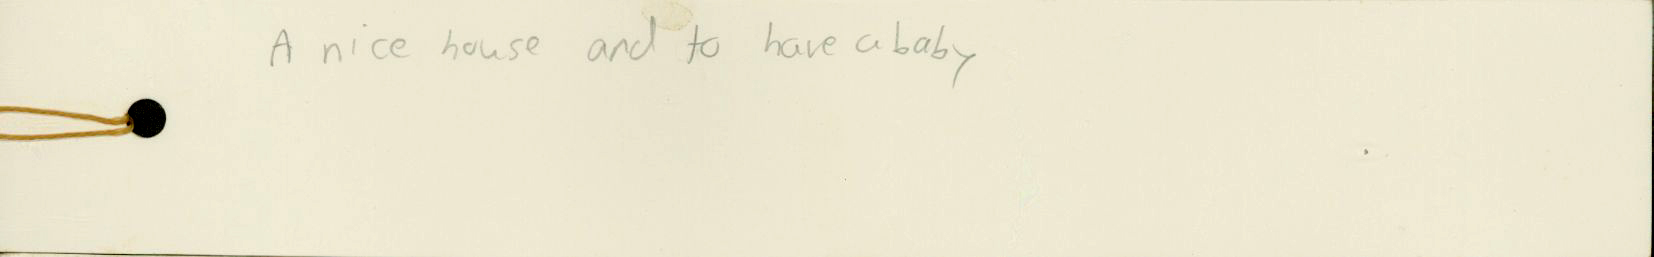 A nice house and to have a baby